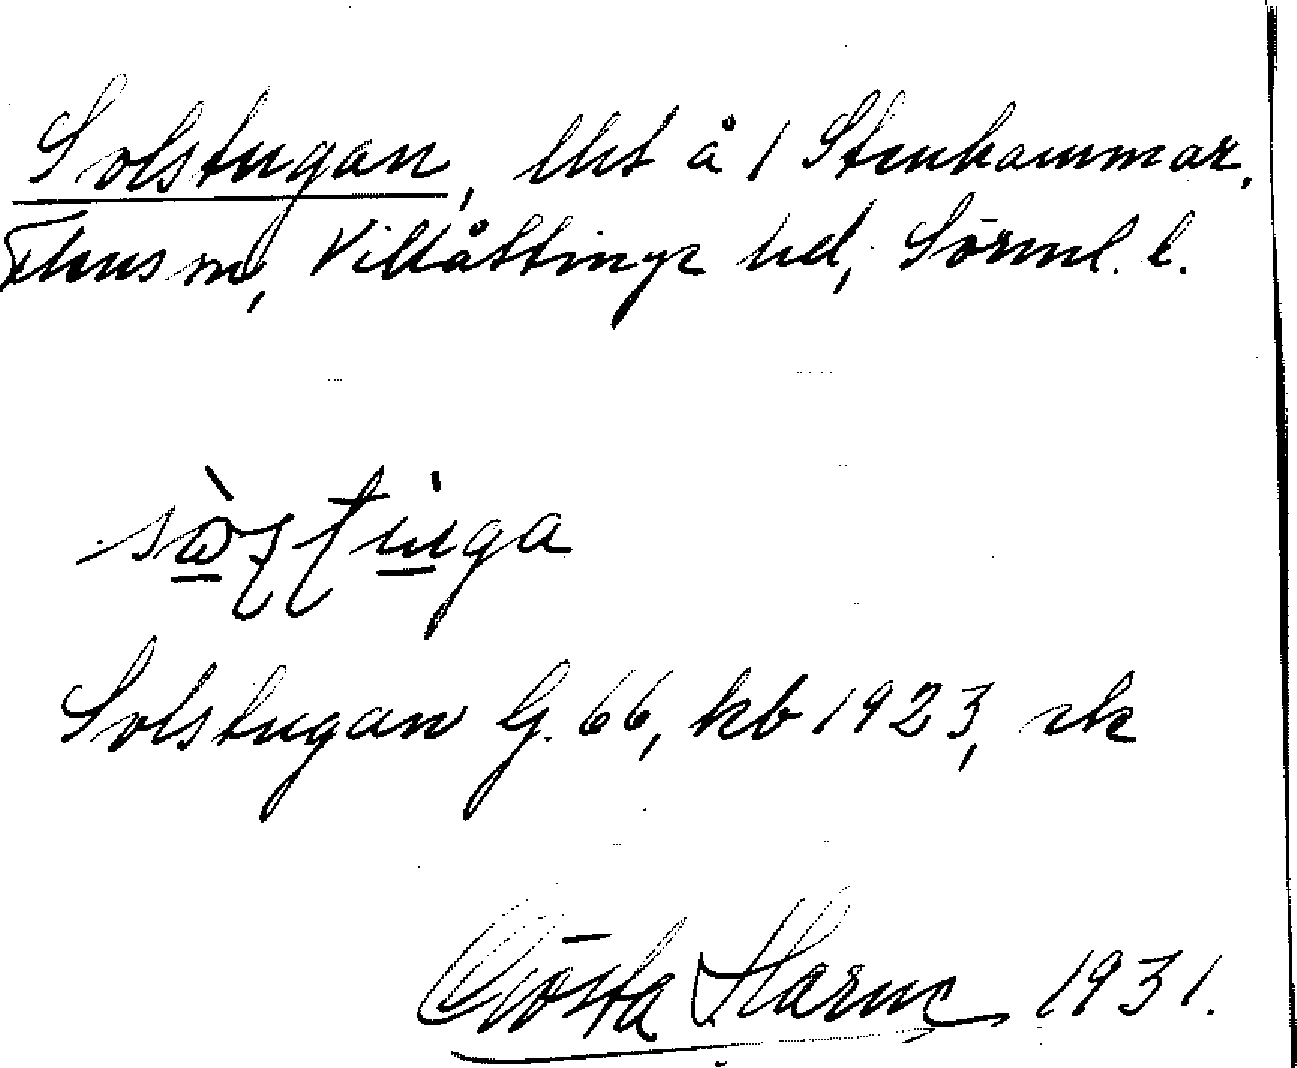 Solstugan, lht å 1 Stenhammar,
Flens sn, Villåttinge hd, Sörml. l.
Solstugan G. 66, kb 1923, rk
Gösta Harne 1931.